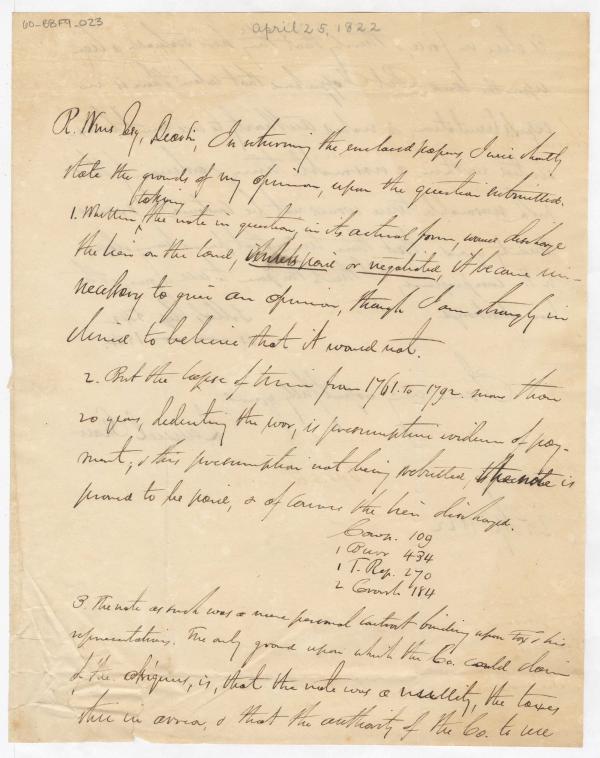 60-BBF9_023
April 25, 1822
R. Wms Esq, Dear Sir, In returning the enclosed papers, I will shortly
state the grounds of my opinion, upon the question submitted.
taking
1. Whether the note in question, in its actual form, would discharge
the lien on the land, unless paid or negotiated, it became un-
necessary to give an opinion, though I am strongly in
clined to believe that it would not.
2. But the lapse of time from 1761. to 1792. more than
20 years, deducting the war, is presumptive evidence of pay-
ment; & this presumption not being rebutted, the note is
proved to be paid, & of course the lien discharged.
Cowp. 109
1 Burr 434
1 T. Rep. 270
2 Cranch 184
3. The note as such was a mere personal contract binding upon Fox & his
representatives. The only ground upon which the Co. could claim
of the assignees, is, that the note was a nullity, the taxes
still in arrear, & that the authority of the Co. to use